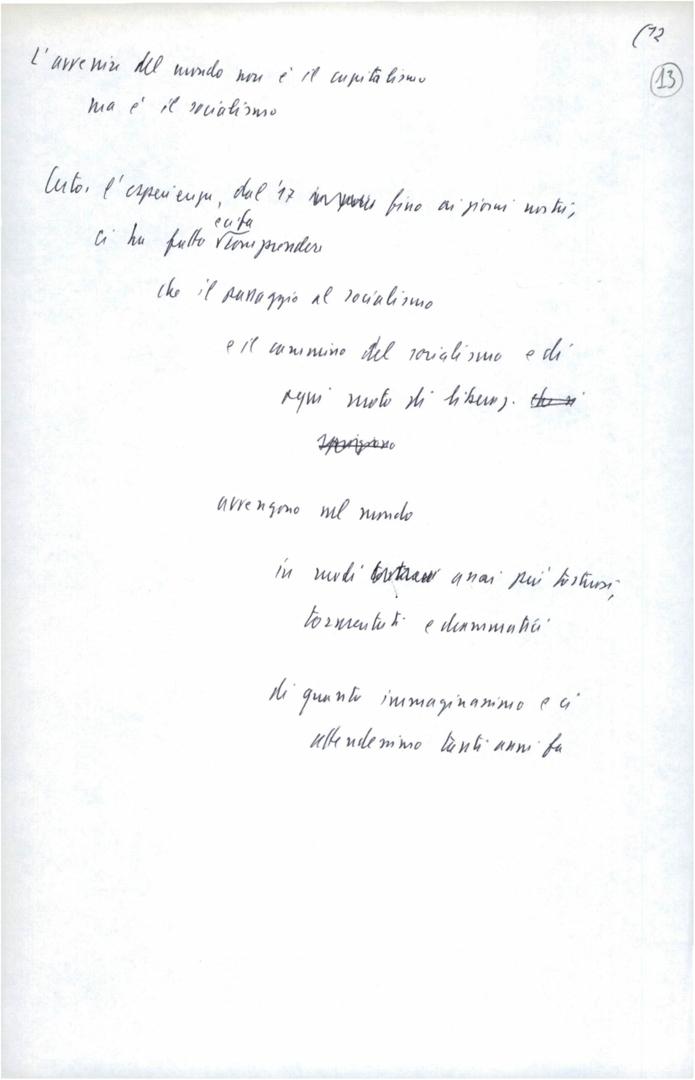 (12
13
L'avvenire del mondo non è il capitalismo
ma è il socialismo
Certo, l'esperienza, dal '17 fino ai giorni nostri,
e ci fa
ci ha fatto comprendere
che il passaggio al socialismo
e il cammino del socialismo e di
ogni moto di liberaz. che si
sprigiona
avvengono nel mondo
in modi assai più tortuosi,
tormentati e drammatici
di quanto immaginassimo e ci
attendessimo tanti anni fa